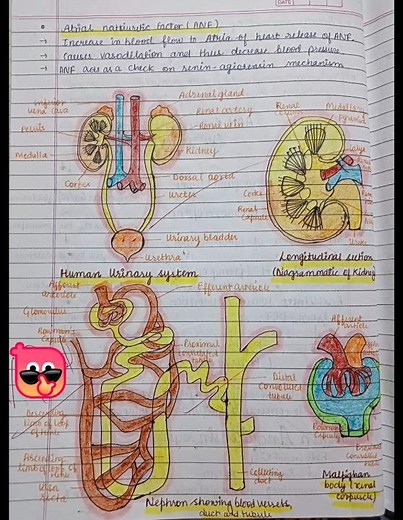 DATE
Atrial natriuretic factor (ANF)
→ Increase in blood flow to Atria of heart release of ANF
→ Causes vasodilation and thus decrease blood pressure
→ ANF acts as a check on renin-agiotensin mechanism
Adrenal gland
Inferior
vena cava
Renal artery
Renal vein
Pelvis
Kidney
Medulla
Cortex
Dorsal aorta
Ureter
Urinary bladder
Urethra
Human Urinary system
Renal
Medullary
Pyramid
Calyx
Cortex
Renal
Capsule
Longitudinal section
(Diagrammatic of Kidney
Afferent
arteriole
Efferent arteriole
Glomerulus
Bowman's
Capsule
Proximal
convoluted
tubule
Descending
limb of loop
of Henle
Ascending
limb of loop of
Henle
Vasa
recta
Distal
convoluted
tubule
Collecting
duct
Nephron showing blood vessels,
duct and tubule
Afferent
arteriole
Bowman's
Capsule
Proximal
convoluted
tubule
Malpighian
body (renal
corpuscle)